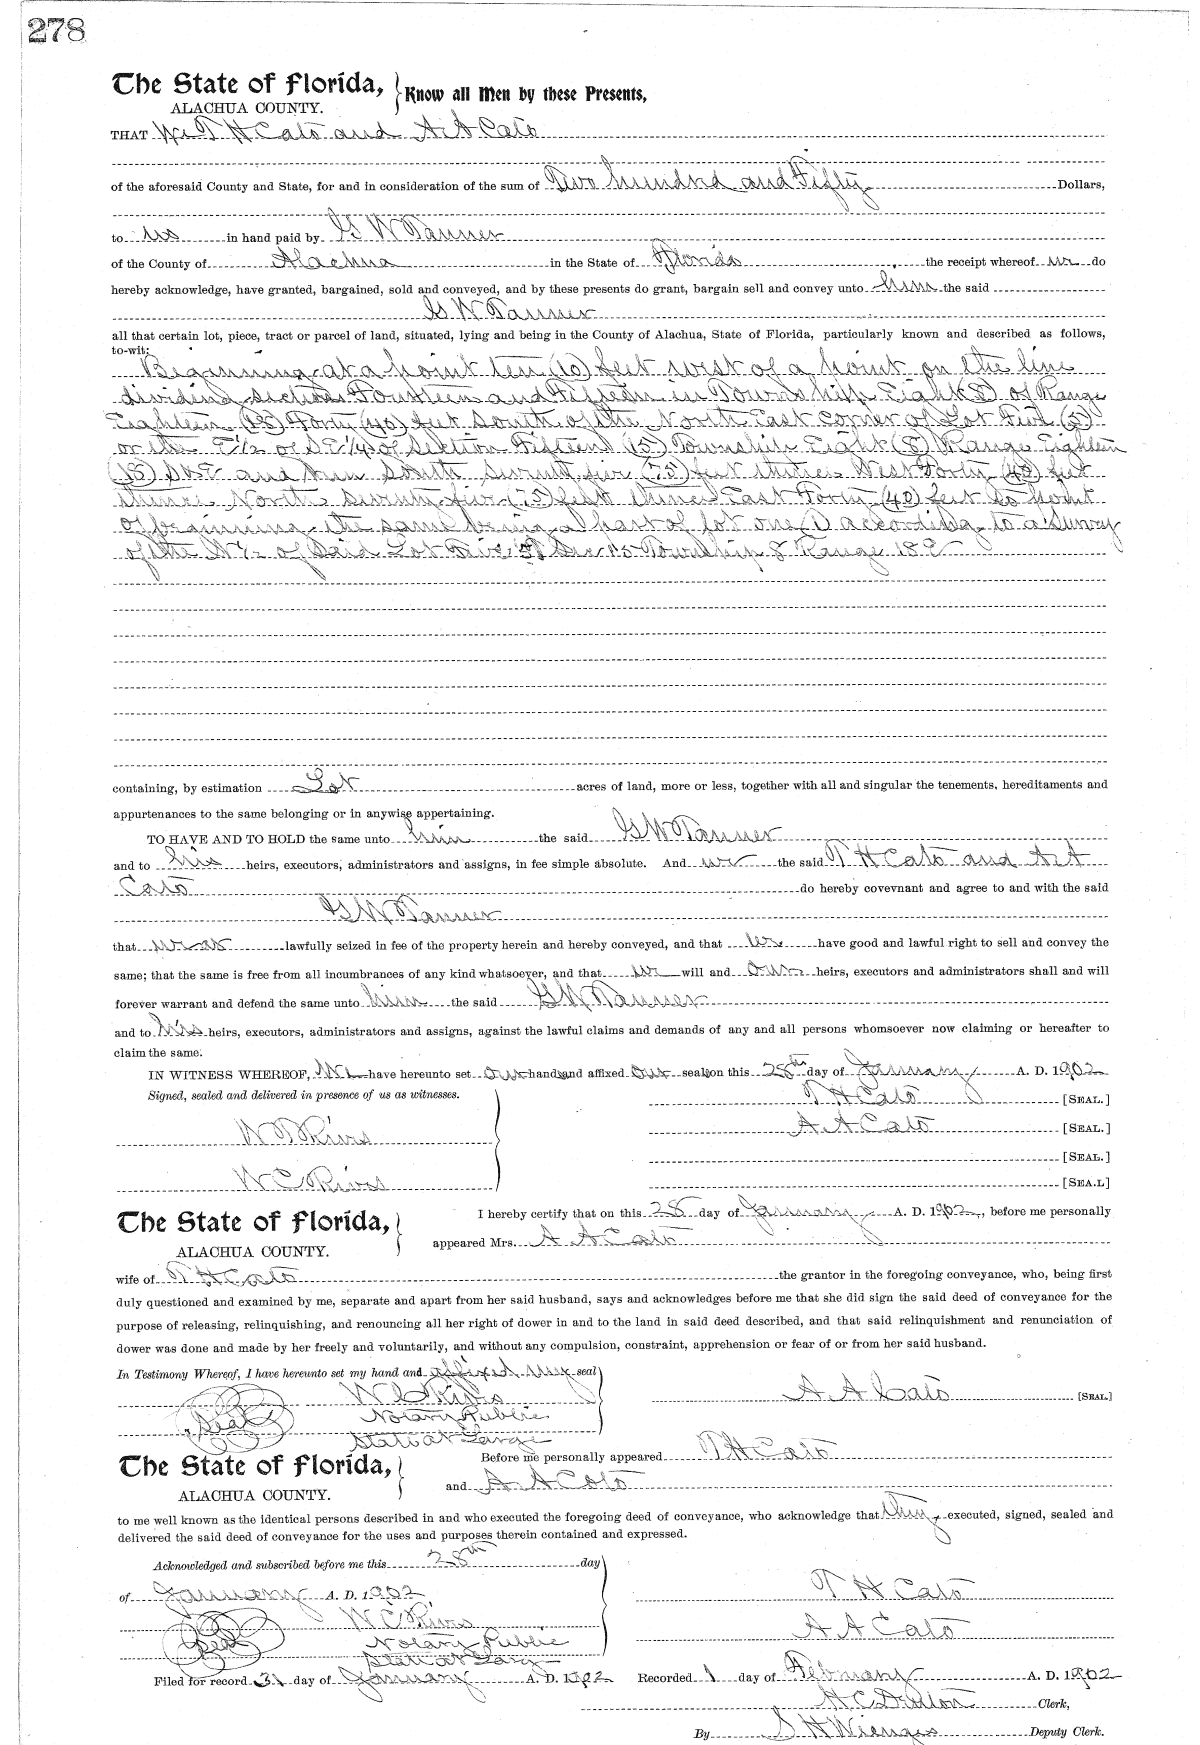 278
The State of Florida, } Know all Men by these Presents,
ALACHUA COUNTY.
THAT We T H Cato and A A Cato
of the aforesaid County and State, for and in consideration of the sum of Two hundred and Fifty Dollars,
to us in hand paid by G W Tanner
of the County of Alachua in the State of Florida the receipt whereof we do
hereby acknowledge, have granted, bargained, sold and conveyed, and by these presents do grant, bargain sell and convey unto him the said
G W Tanner
all that certain lot, piece, tract or parcel of land, situated, lying and being in the County of Alachua, State of Florida, particularly known and described as follows,
to-wit:
Beginning at a point ten (10) feet west of a point on the line
dividing sections Fourteen and Fifteen in Township Eight (8) of Range
Eighteen (18) Forty (40) feet South of the North East corner of Lot Five (5)
or the E 1/2 of SE 1/4 of Section Fifteen (15) Township Eight (8) Range Eighteen
(18) S & E and run South Seventy five (75) feet thence West Forty (40) feet
thence North Seventy five (75) feet thence East Forty (40) feet to point
of beginning, the same being a part of lot one (1) according to a Survey
of the N 1/2 of Said Lot Five 5 Sec 15 Township 8 Range 18 E
containing, by estimation Lot acres of land, more or less, together with all and singular the tenements, hereditaments and
appurtenances to the same belonging or in anywise appertaining.
TO HAVE AND TO HOLD the same unto him the said G W Tanner
and to his heirs, executors, administrators and assigns, in fee simple absolute. And we the said T H Cato and A A
Cato do hereby covevnant and agree to and with the said
G W Tanner
that we are lawfully seized in fee of the property herein and hereby conveyed, and that we have good and lawful right to sell and convey the
same; that the same is free from all incumbrances of any kind whatsoever, and that we will and our heirs, executors and administrators shall and will
forever warrant and defend the same unto him the said G W Tanner
and to his heirs, executors, administrators and assigns, against the lawful claims and demands of any and all persons whomsoever now claiming or hereafter to
claim the same.
IN WITNESS WHEREOF, We have hereunto set our hands and affixed our seals on this 28th day of January A. D. 1902
Signed, sealed and delivered in presence of us as witnesses.
T H Cato [SEAL.]
W T Rivers A A Cato [SEAL.]
[SEAL.]
W C Rivers [SEA.L]
The State of Florida, } I hereby certify that on this 28 day of January A. D. 1902, before me personally
ALACHUA COUNTY. appeared Mrs. A A Cato
wife of T H Cato the grantor in the foregoing conveyance, who, being first
duly questioned and examined by me, separate and apart from her said husband, says and acknowledges before me that she did sign the said deed of conveyance for the
purpose of releasing, relinquishing, and renouncing all her right of dower in and to the land in said deed described, and that said relinquishment and renunciation of
dower was done and made by her freely and voluntarily, and without any compulsion, constraint, apprehension or fear of or from her said husband.
In Testimony Whereof, I have hereunto set my hand and affixed my seal
W C Rivers A A Cato [SEAL]
Seal Notary Public
State at Large
The State of Florida, } Before me personally appeared T H Cato
ALACHUA COUNTY. and A A Cato
to me well known as the identical persons described in and who executed the foregoing deed of conveyance, who acknowledge that they executed, signed, sealed and
delivered the said deed of conveyance for the uses and purposes therein contained and expressed.
Acknowledged and subscribed before me this 28th day
of January A. D. 1902 T H Cato
W C Rivers A A Cato
Seal Notary Public
State at Large
Filed for record 31 day of January A. D. 1902 Recorded 1 day of February A. D. 1902
H C Denton Clerk,
By S H Wienges Deputy Clerk.